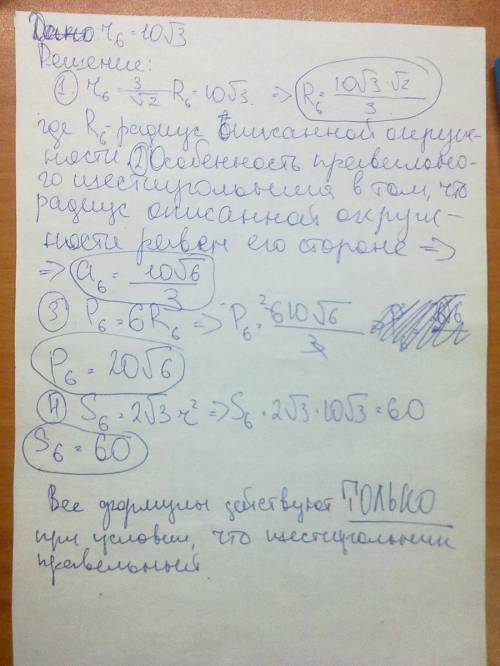 Дано r₆ = 10√3
Решение:
① r₆ = 3/√2 R₆ = 10√3 => R₆ = 10√3·√2/3
где R₆ - радиус описанной окруж-
ности ② Особенность правильно-
го шестиугольника в том, что
радиус описанной окруж-
ности равен его стороне =>
=> a₆ = 10√6/3
③ P₆ = 6R₆ => P₆ = ²6 10√6/3
P₆ = 20√6
④ S₆ = 2√3 r² => S₆ = 2√3·10√3 = 60
S₆ = 60
Все формулы действуют ТОЛЬКО
при условии, что шестиугольник
правельный.